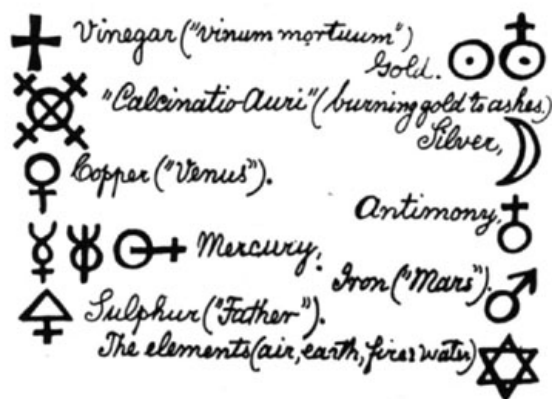 Vinegar ("vinum mortuum")
Gold.
"Calcinatio Auri" (burning gold to ashes.)
Silver,
Copper ("Venus").
Antimony,
Mercury.
Iron ("Mars").
Sulphur ("Father").
The elements (air, earth, fire & water)